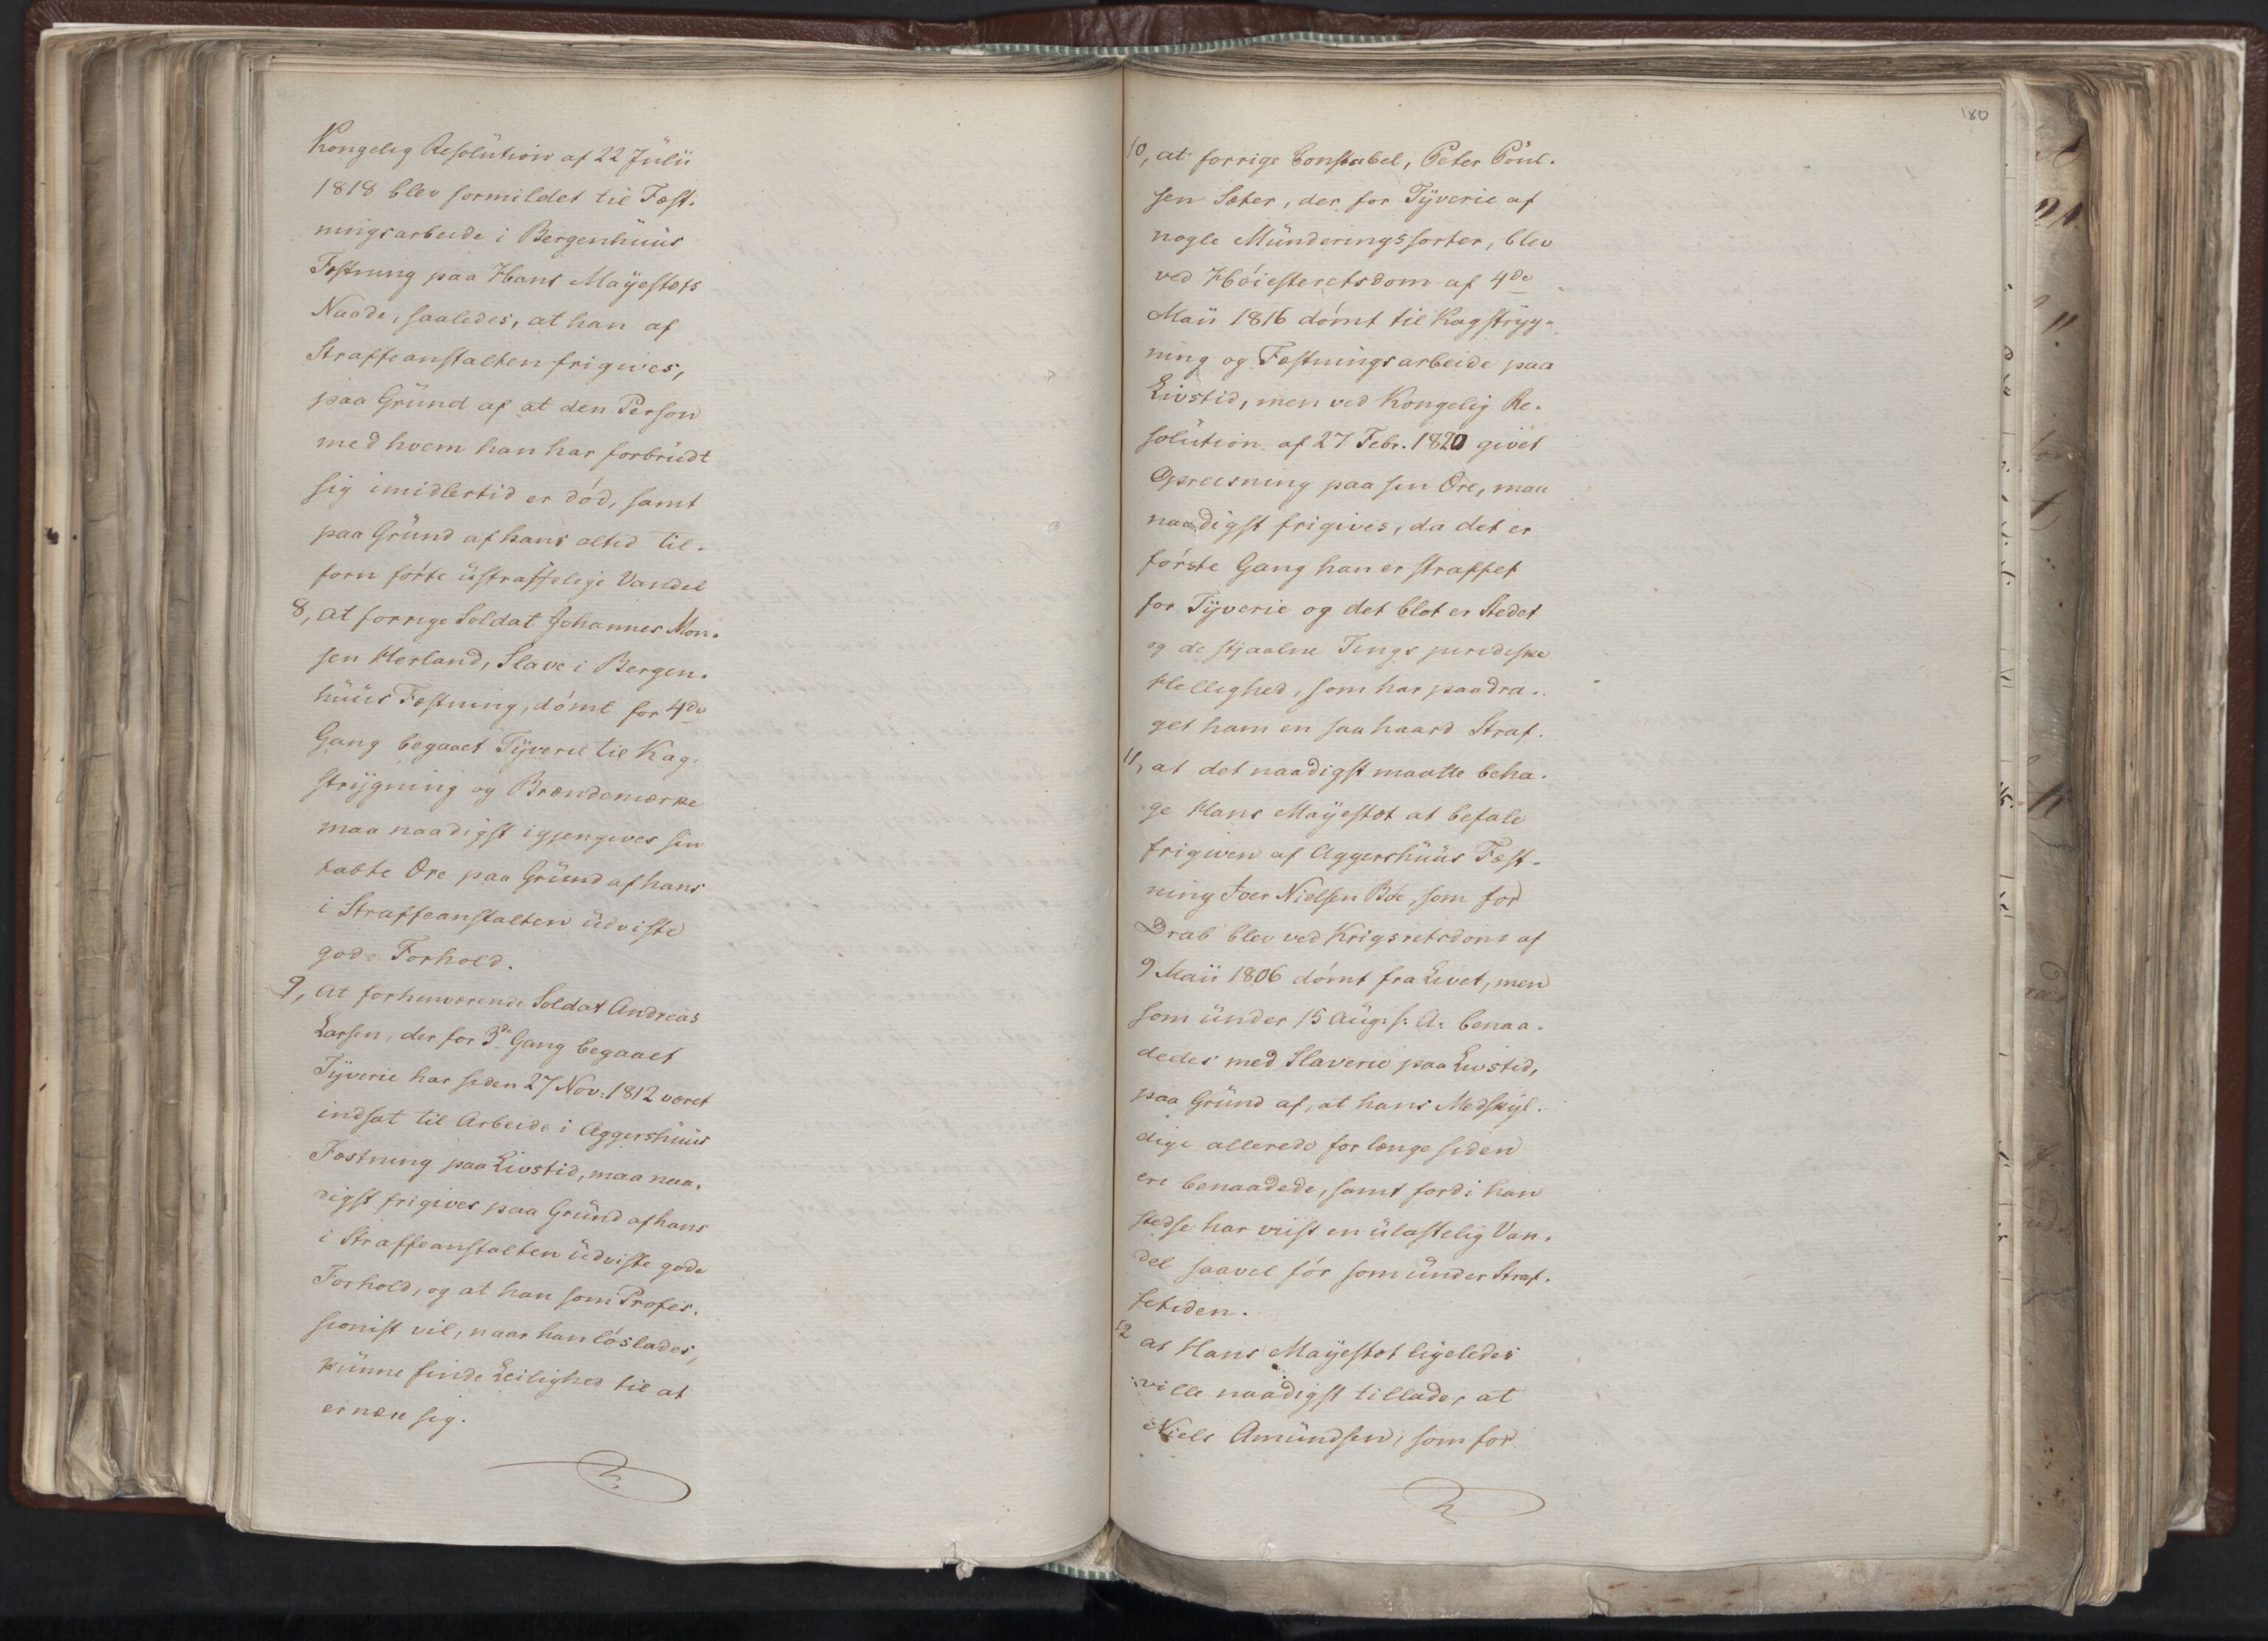 Kongelig Resolution af 22 Julii
1818 blev formildet til Fæst-
ningsarbeide i Bergenhuus
Fæstning paa Hans Mayestæts
Naade, saaledes, at han af
Straffeanstalten frigives,
paa Grund af at den Person
med hvem han har forbrudt
sig imidlertid er død, samt
paa Grund af hans altid til-
forn førte ustraffelige Vandel
8, at forrige Soldat Johannes Mon-
sen Herland, Slave i Bergen-
huus Fæstning, dømt for 4de
Gang begaaet Tyverie til Kag-
strygning og Brændemærke
maa naadigst igjengives sin
tabte Ære paa Grund af hans
i Straffeanstalten udviste
gode Forhold.
9, at forhenværende Soldat Andreas
Larsen, der for 3de Gang begaaet
Tyverie har siden 27 Nov: 1812 været
indsat til Arbeide i Aggershuus
Fæstning paa Livstid, maa naa-
digst frigives paa Grund af hans
i Straffeanstalten udviste gode
Forhold, og at han som Profes-
sionist vil, naar han løslades,
kunne finde Leilighed til at
ernære sig.
180
10, at forrige Constabel, Peter Poul-
sen Sæter, der for Tyverie af
nogle Munderingssorter, blev
ved Høiesteretsdom af 4de
Maii 1816 dømt til Kagstryg-
ning og Fæstningsarbeide paa
Livstid, men ved Kongelig Re-
solution af 27 Febr. 1820 givet
Opreisning paa sin Ære, maa
naadigst frigives, da det er
første Gang han er straffet
for Tyverie og det blot er Stedet
og de stjaalne Tings juridiske
Hellighed, som har paadra-
get ham en saa haard Straf.
11, at det naadigst maatte beha-
ge Hans Mayestæt at befale
frigiven af Aggershuus Fæst-
ning Iver Nielsen Bøe, som for
Drab blev ved Krigsretsdom af
9 Maii 1806 dømt fra Livet, men
som under 15 Aug: s: A: benaa-
dedes med Slaverie paa Livstid,
paa Grund af, at hans Medskyl-
dige allerede for længe siden
ere benaadede, samt fordi han
stedse har viist en ulastelig Van-
del saavel før som under Straf-
fetiden.
12 at Hans Mayestæt ligeledes
ville naadigst tillade, at
Niels Amundsen, som for